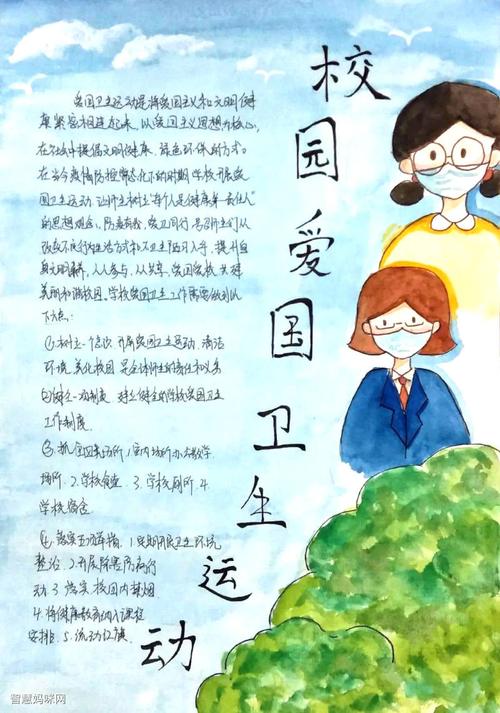 校园爱国卫生运动
爱国卫生运动是将爱国主义和文明健
康紧密相连起来，以爱国主义思想为核心，
在社会中提倡文明健康、绿色环保的方式。
在当今疫情防控常态化下的时期，学校开展爱
国卫生运动，让师生树立“每个人是健康第一责任人”
的思想观念，防疫有我，爱卫同行，号召师生们从
改变不良行为生活方式和不卫生陋习入手，提升自
身文明素养，人人参与，人人共享，爱国爱校，共建
美丽和谐校园。学校爱国卫生工作需要做到以
下点：
①树立一个意识 开展爱国卫生运动，清洁
环境，美化校园是全体师生的责任和义务
②建立一项制度 建立健全的学校爱国卫生
工作制度。
③抓 四 场所，1室内场所办公教学
场所，2.学校食堂 3.学校厕所 4.
学校宿舍
④落实五项举措，1.定期开展卫生环境
整治 2.开展除害防病行
动 3.落实校园内禁烟
4.将健康教育纳入课程
安排 5.流动红旗
智慧妈咪网